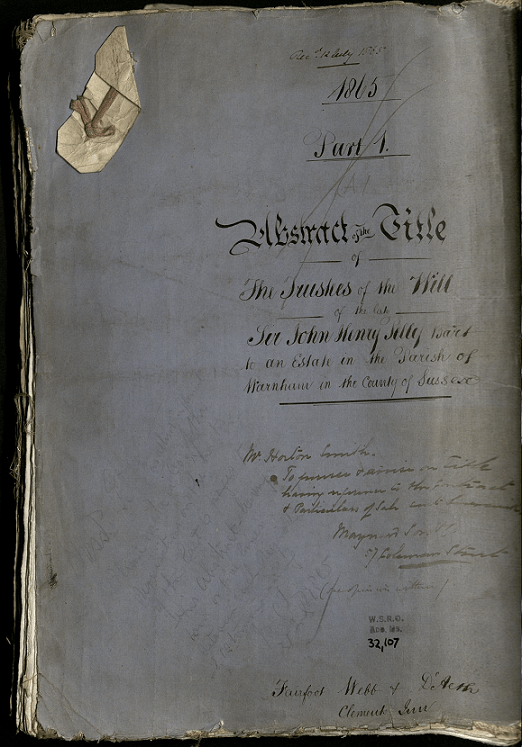 1865
Part 1.
Abstract of the Title
of
The Trustees of the Will
of the late
Sir John Henry Pelly Bart
to an Estate in the Parish of
Warnham in the County of Sussex
Mr Horton Smith.
To peruse & advise on Title
having reference to the Contract
& Particulars of Sale
Maynard Son &
57 Coleman Street
W.S.R.O.
Add. Ms.
32,107
Fairfoot Webb & D'Aeth
Clements Inn